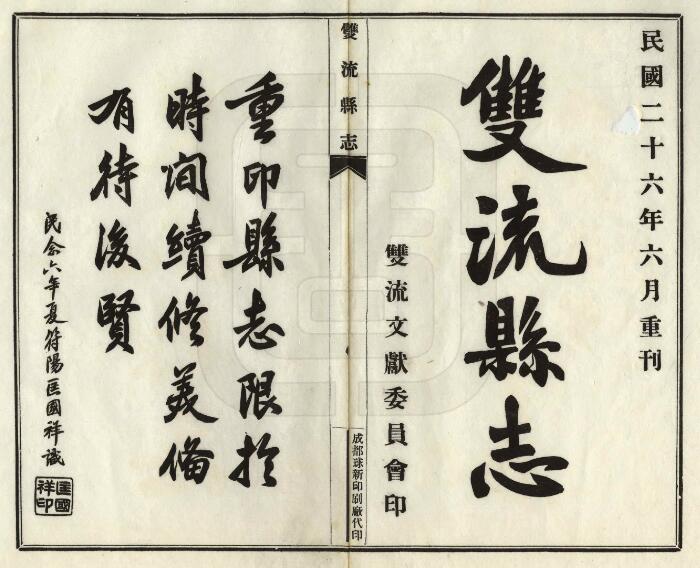 民國二十六年六月重刊
雙流縣志
雙流文獻委員會印
雙流縣志
成都球新印刷廠代印
重印縣志限於
時间續修美備
有待後賢
民念六年夏符陽匡國祥識
匡國祥印